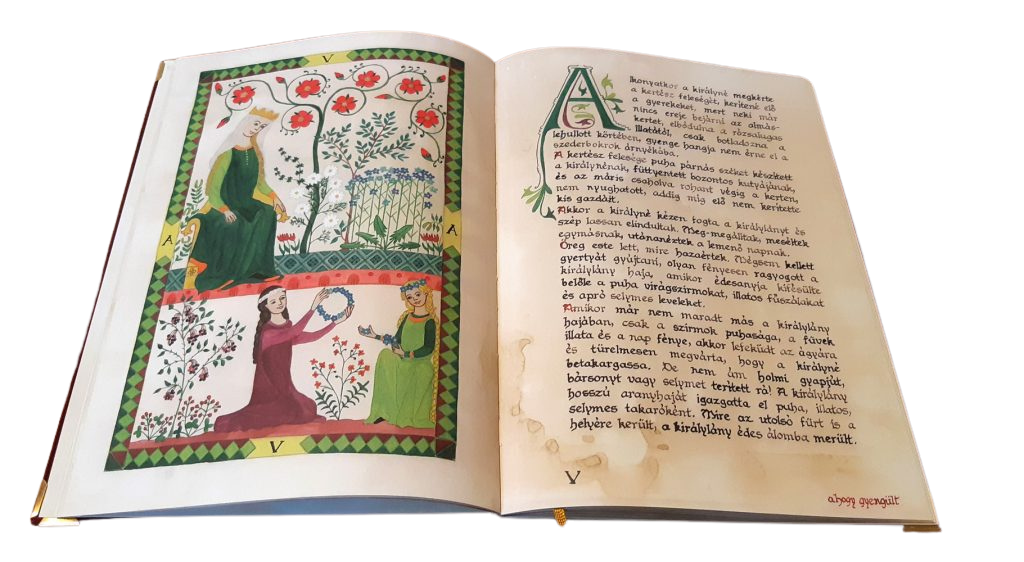 V
A
A
V
Alkonyatkor a királyné megkérte
a kertész feleségét, kerítené elő
a gyerekeket, mert neki már
nincs ereje bejárni az almás-
kertet, elbódulna a rózsalugas
illatától, csak botladozna a
lehullott körtében, gyenge hangja nem érne el a
szederbokrok árnyékába.
A kertész felesége puha párnás széket készített
a királynénak, füttyentett bozontos kutyájának,
és az máris csaholva rohant végig a kerten,
nem nyughatott, addig míg elő nem kerítette
kis gazdáit.
Akkor a királyné kézen fogta a királylányt és
szép lassan elindultak. Meg-megálltak, meséltek
egymásnak, utánanéztek a lemenő napnak.
Öreg este lett, mire hazaértek. Mégsem kellett
gyertyát gyújtani, olyan fényesen ragyogott a
királylány haja, amikor édesanyja kifésülte
belőle a puha virágszirmokat, illatos fűszálakat
és apró selymes leveleket.
Amikor már nem maradt más a királylány
hajában, csak a szirmok puhasága, a füvek
illata és a nap fénye, akkor lefeküdt az ágyára
és türelmesen megvárta, hogy a királyné
betakargassa. De nem ám holmi gyapjút,
bársonyt vagy selymet terített rá! A királylány
hosszú aranyhaját igazgatta el puha, illatos,
selymes takaróként. Mire az utolsó fürt is a
helyére került, a királylány édes álomba merült.
V
ahogy gyengült